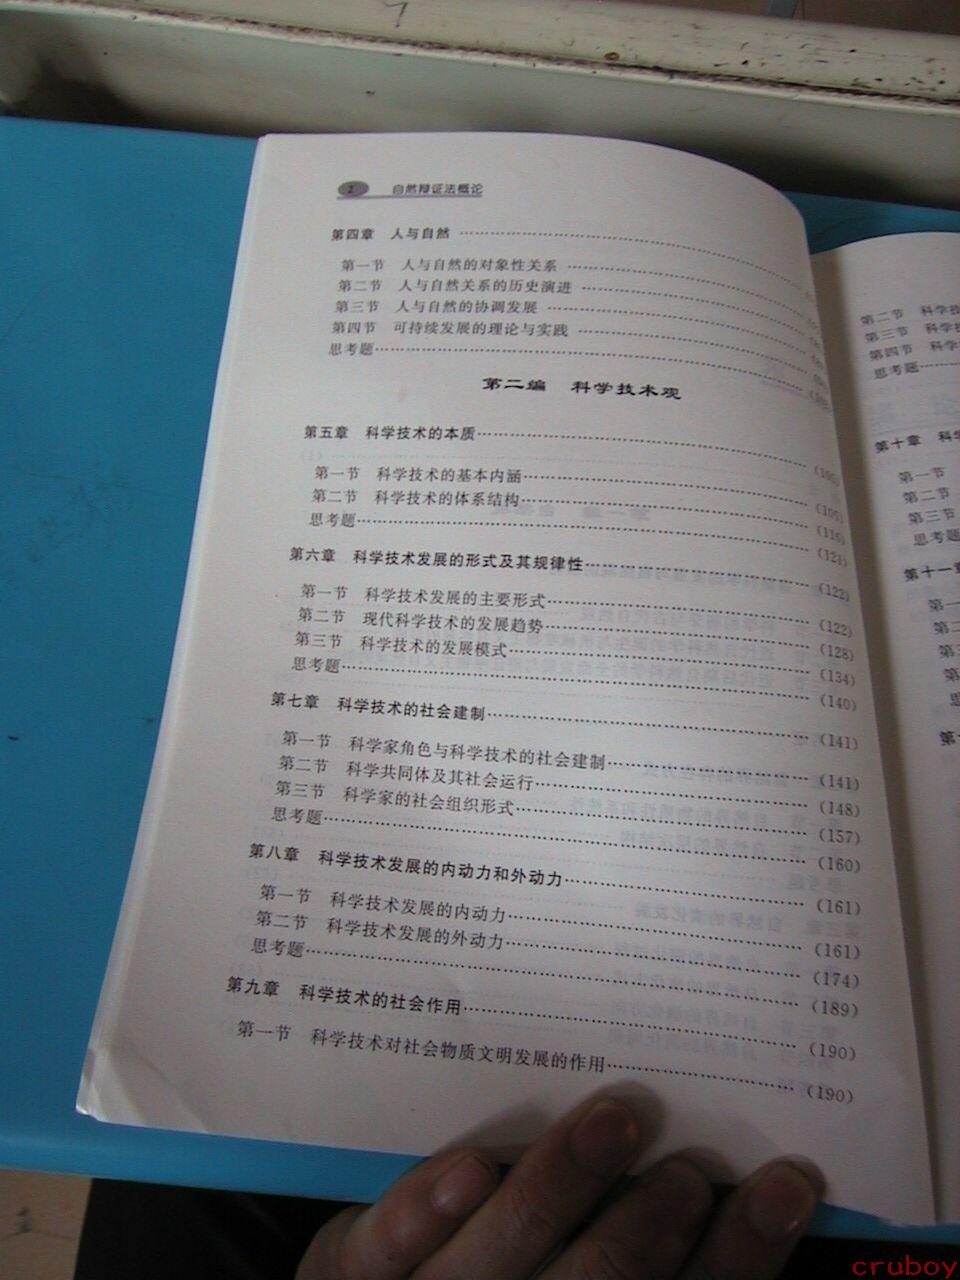 2 自然辩证法概论
第四章 人与自然
第一节 人与自然的对象性关系
第二节 人与自然关系的历史演进
第三节 人与自然的协调发展
第四节 可持续发展的理论与实践
思考题
第二编 科学技术观
第五章 科学技术的本质 (105)
第一节 科学技术的基本内涵 (105)
第二节 科学技术的体系结构 (116)
思考题 (121)
第六章 科学技术发展的形式及其规律性 (122)
第一节 科学技术发展的主要形式 (122)
第二节 现代科学技术的发展趋势 (128)
第三节 科学技术的发展模式 (134)
思考题 (140)
第七章 科学技术的社会建制 (141)
第一节 科学家角色与科学技术的社会建制 (141)
第二节 科学共同体及其社会运行 (148)
第三节 科学家的社会组织形式 (157)
思考题 (160)
第八章 科学技术发展的内动力和外动力 (161)
第一节 科学技术发展的内动力 (161)
第二节 科学技术发展的外动力 (174)
思考题 (189)
第九章 科学技术的社会作用 (190)
第一节 科学技术对社会物质文明发展的作用 (190)
第二节 科学技
第三节 科学技
第四节 科学
思考题
第十章 科学
第一节
第二节
第三节
思考题
第十一章
第一
第二
第三
cruboy